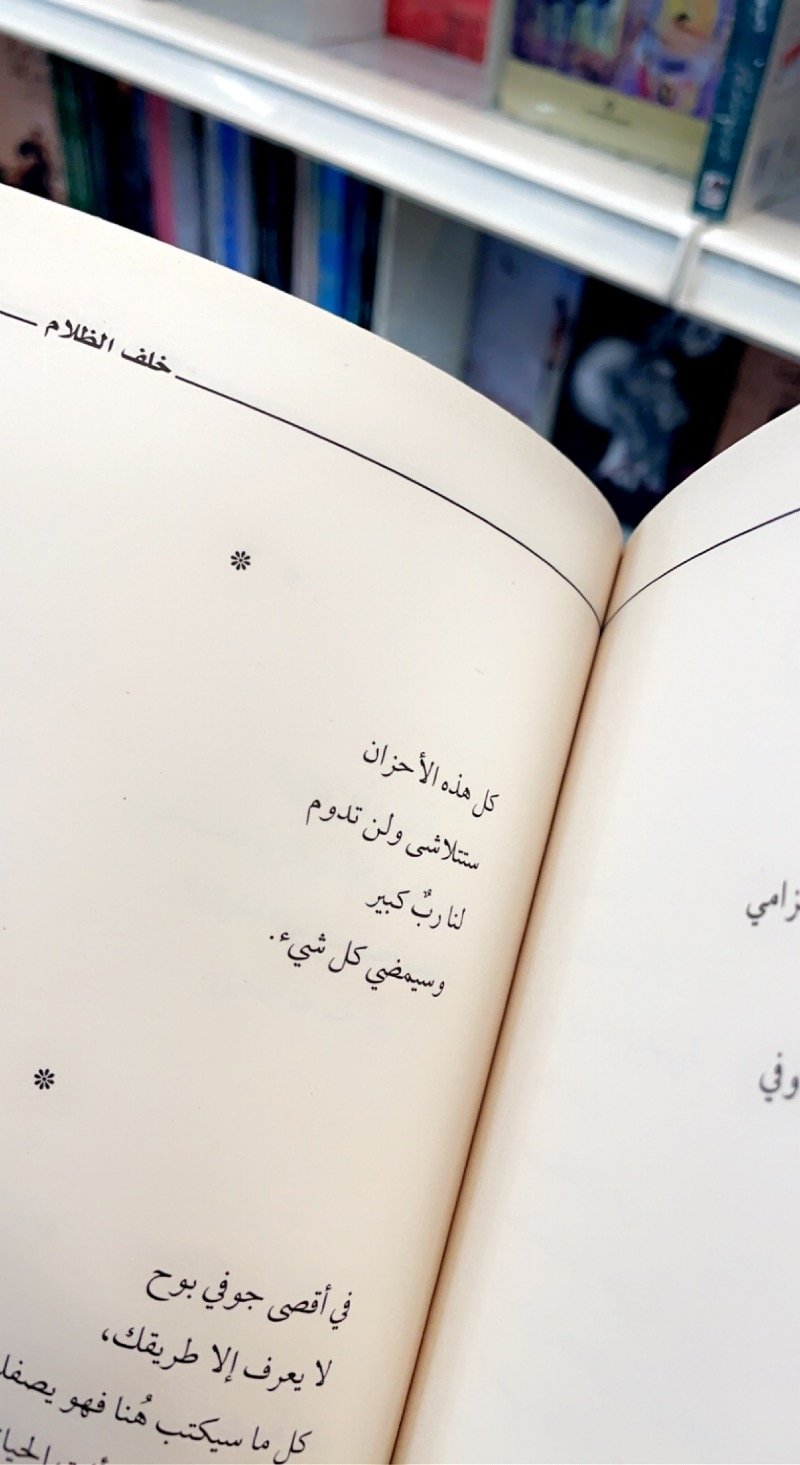 خلف الظلام
كل هذه الأحزان
ستتلاشى ولن تدوم
لنا ربٌ كبير
وسيمضي كل شيء.
في أقصى جوفي بوح
لا يعرف إلا طريقك،
كل ما سيكتب هُنا فهو
وفي